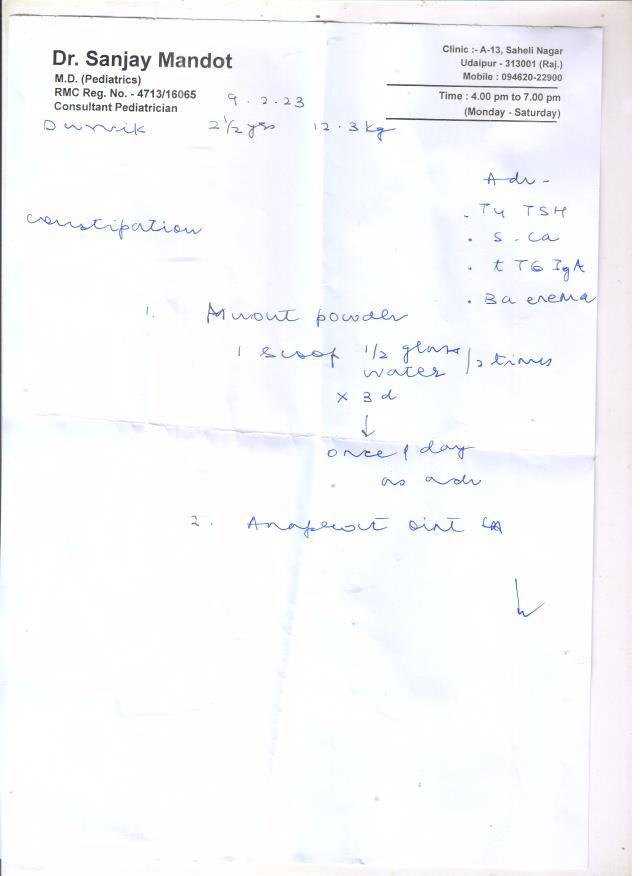 Dr. Sanjay Mandot
M.D. (Pediatrics)
RMC Reg. No. - 4713/16065
Consultant Pediatrician
Clinic :- A-13, Saheli Nagar
Udaipur - 313001 (Raj.)
Mobile : 094620-22900
Time : 4.00 pm to 7.00 pm
(Monday - Saturday)
9.2.23
2 1/2 yrs 12.3 kg
Adv -
. T4 TSH
. S. Ca
. t TG IgA
. Ba enema
constipation
1. powder
1 scoop 1/2 glass
water / 2 times
x 3 d
↓
once / day
as adv
2. oint LA